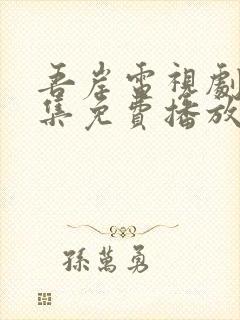 吾岸雷視劇
集免費播放
孫萬勇